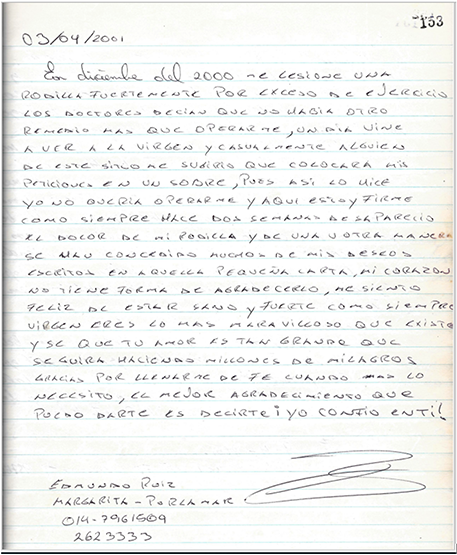 133
03/04/2001
En diciembre del 2000 me lesione una
rodilla fuertemente por exceso de ejercicio
los doctores decian que no habia otro
remedio mas que operarme, un dia vine
a ver a la virgen y casualmente alguien
de este sitio me sugirio que colocara mis
peticiones en un sobre, pues asi lo hice
yo no queria operarme y aqui estoy firme
como siempre hace dos semanas desaparecio
el dolor de mi rodilla y de una u otra manera
se han concedido muchos de mis deseos
escritos en aquella pequeña carta, mi corazon
no tiene forma de agradecerlo, me siento
feliz de estar sano y fuerte como siempre
virgen eres lo mas maravilloso que existe
y se que tu amor es tan grande que
seguira haciendo millones de milagros
gracias por llenarme de fe cuando mas lo
necesito, el mejor agradecimiento que
puedo darte es decirte ¡yo confio en ti!
Edmundo Ruiz
Margarita - Porlamar.
014-7961509
2623333